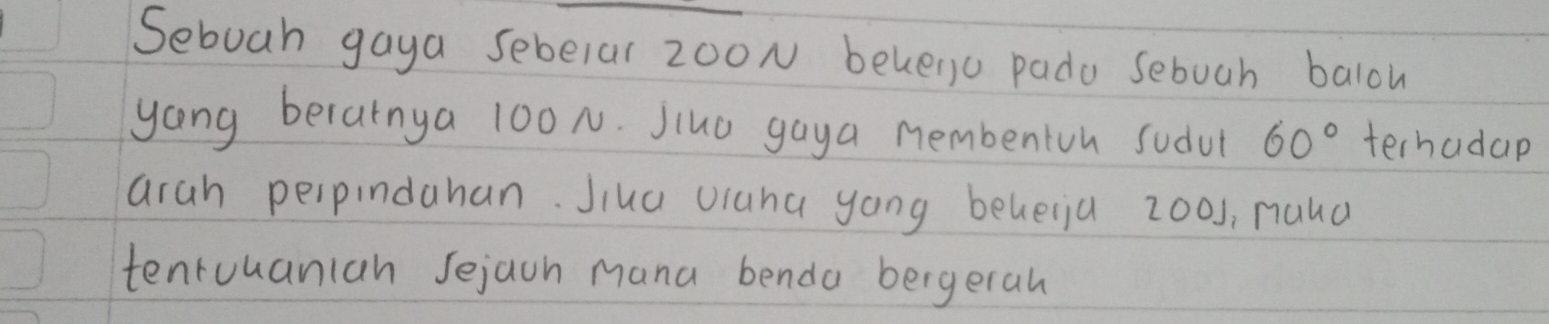 Sebuah gaya sebesar 200N bekerja pada sebuah balok
yang beratnya 100 N. Jika gaya membentuk sudut 60° terhadap
arah perpindahan. Jika usaha yang bekerja 200J, maka
tentukanlah sejauh mana benda bergerak